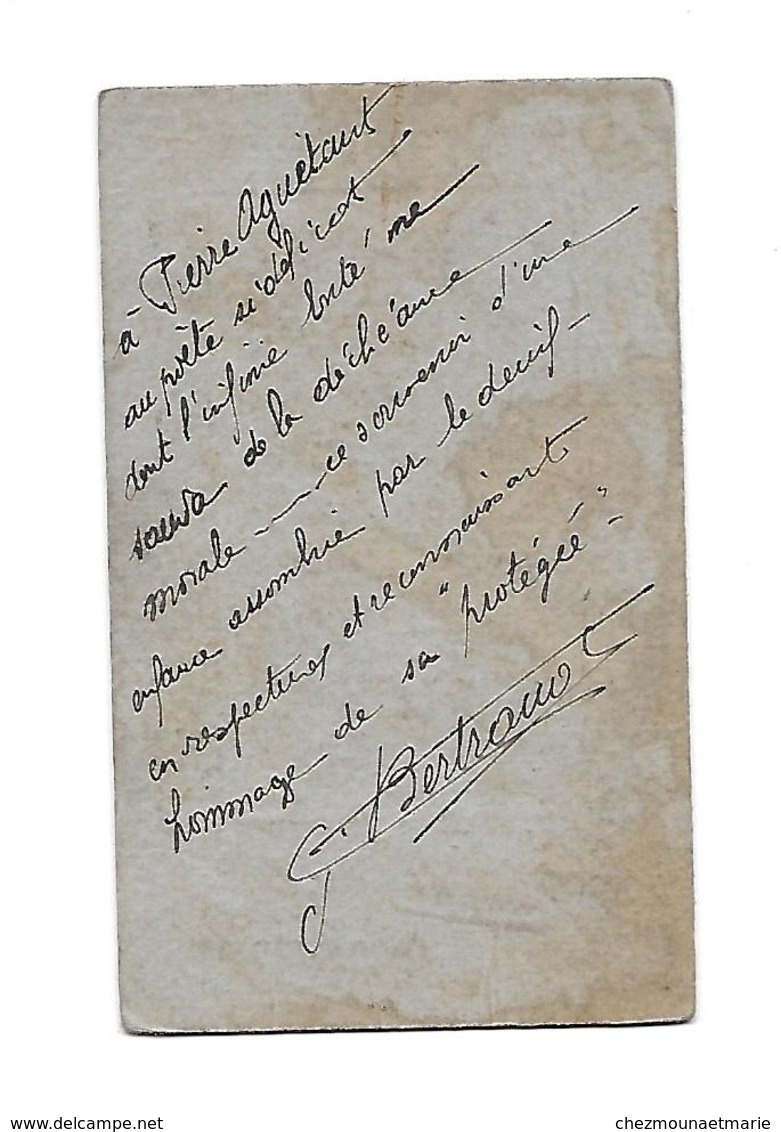 à Pierre Aguétant
au poète si délicat
dont l'infinie bonté me
sauva de la déchéance
morale — ce souvenir d'une
enfance assombrie par le deuil —
en respectueux et reconnaissant
hommage de son "protégé" -
G. Bertrand
chezmounaetmarie